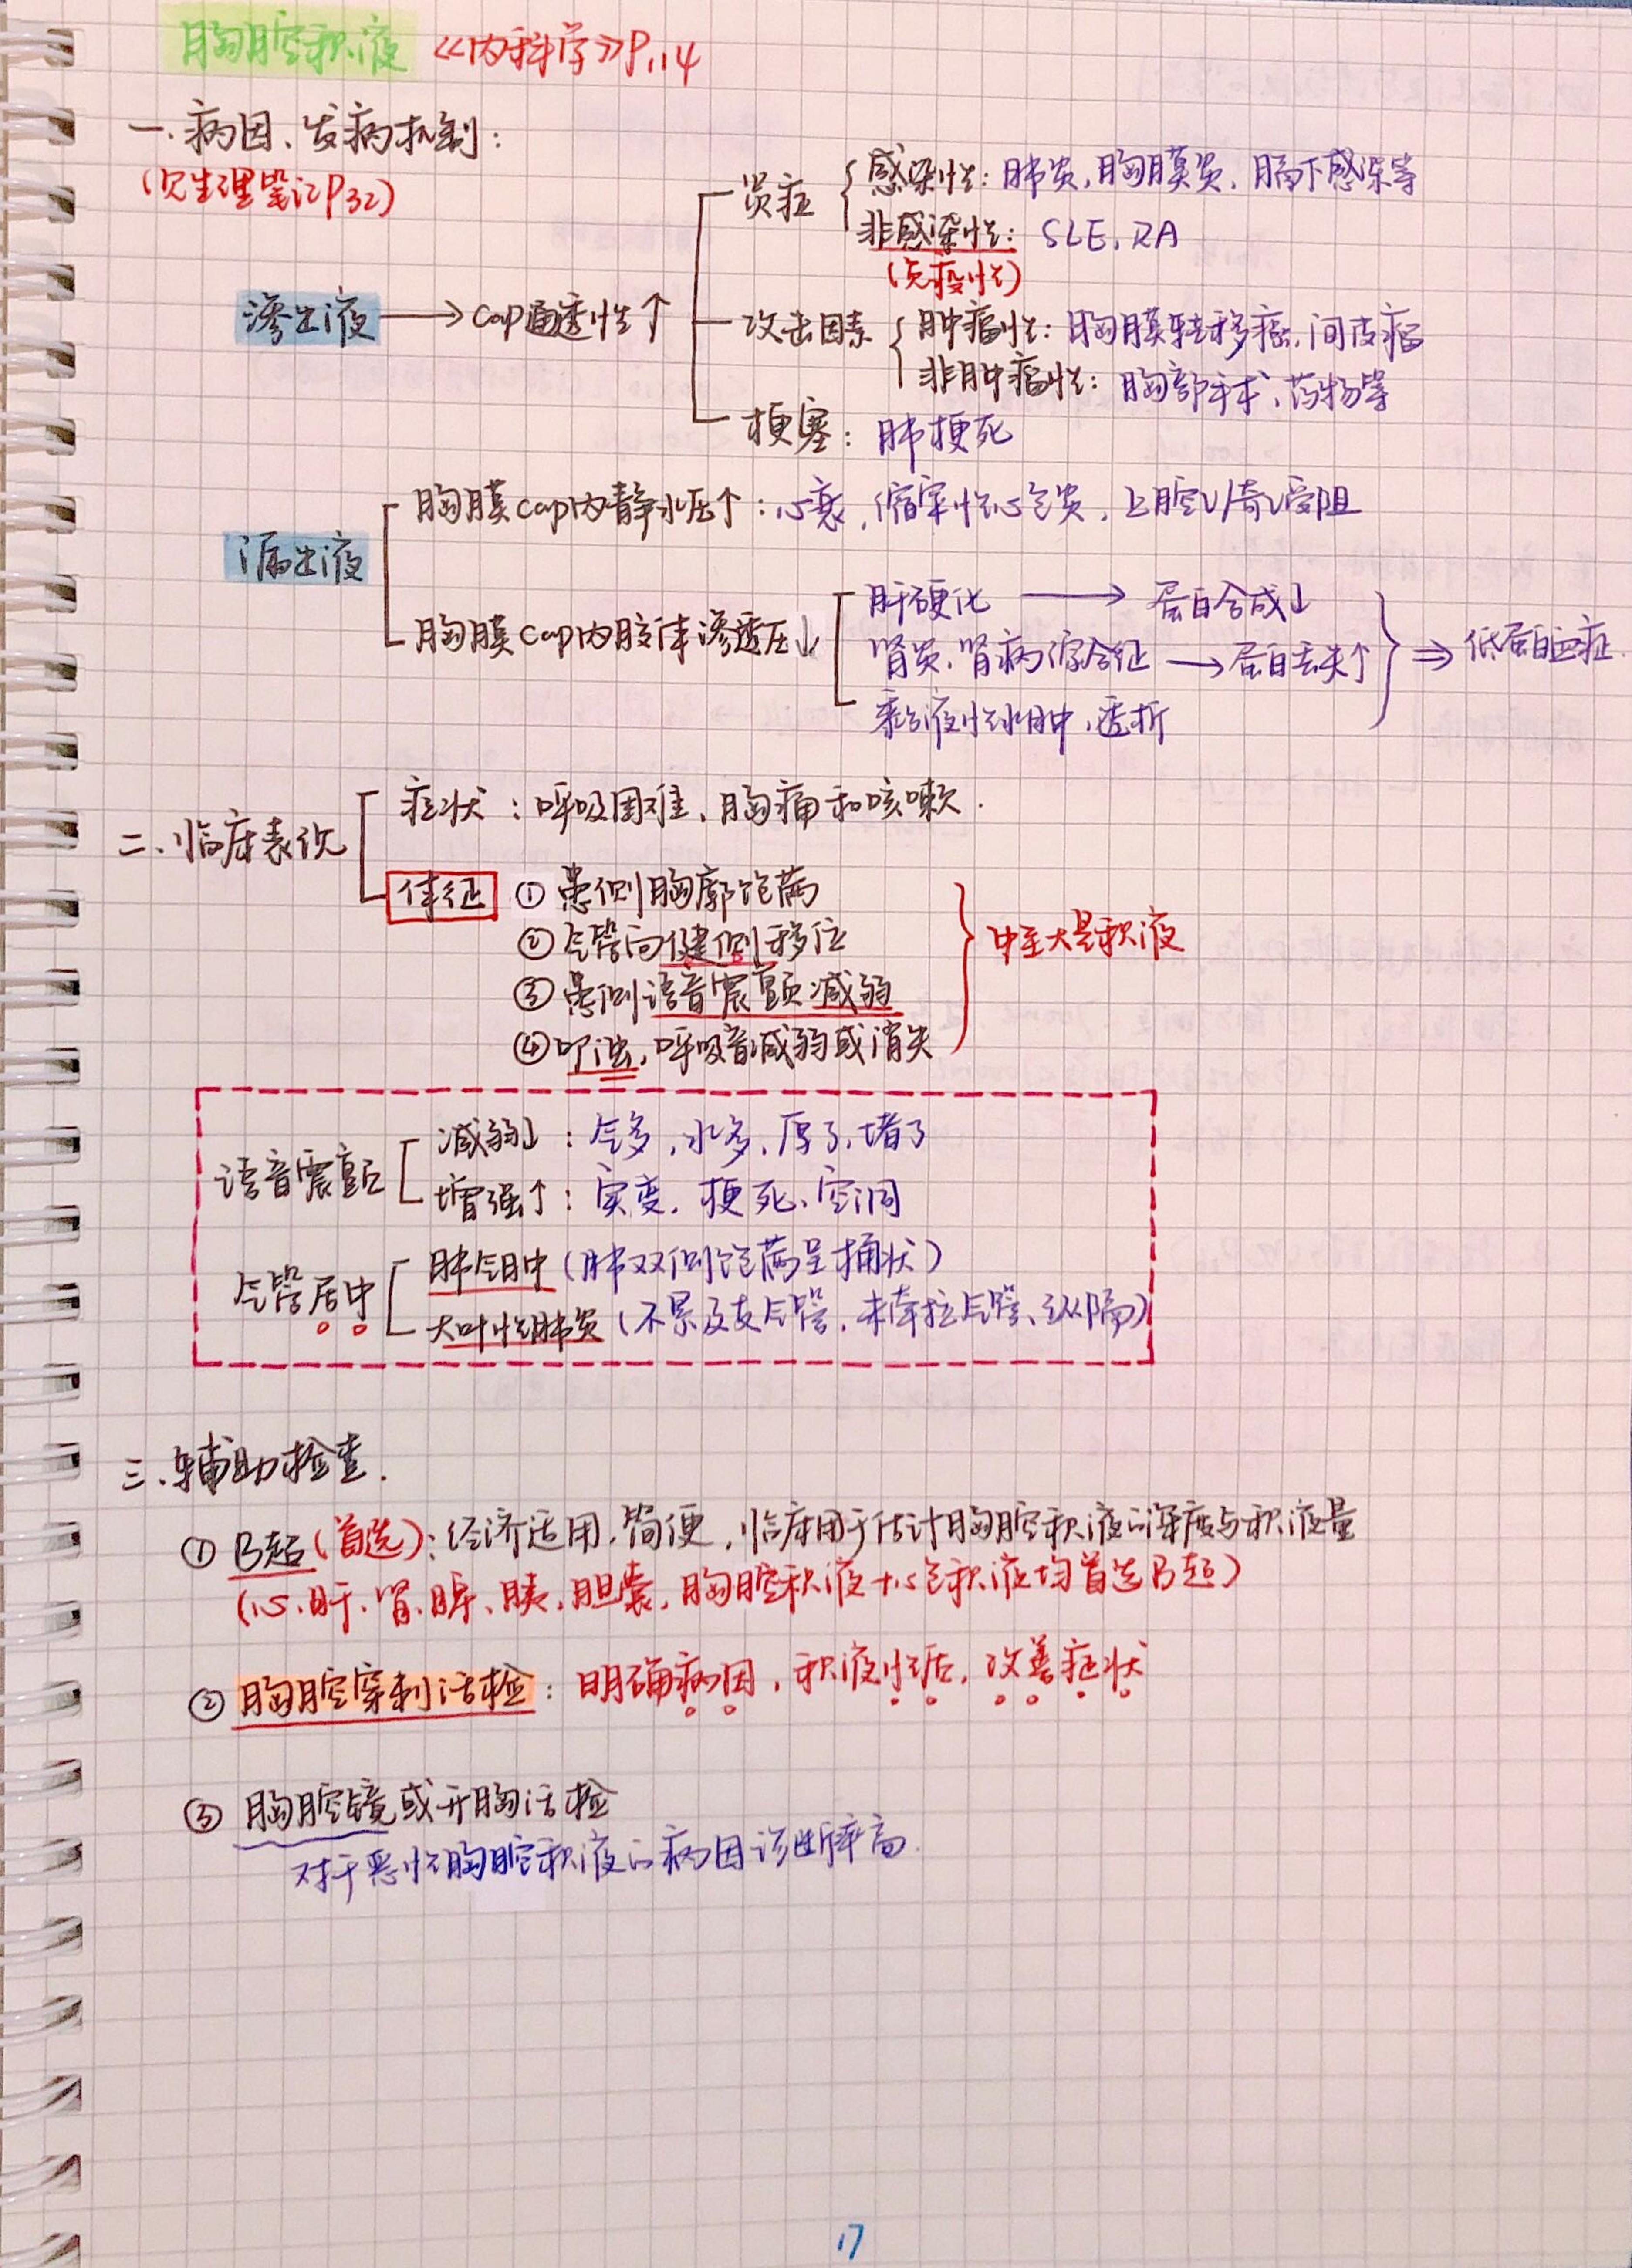 胸腔积液 《内科学》P.114
一.病因、发病机制:
(见生理笔记P32)
炎症
感染性: 肺炎,胸膜炎、膈下感染等
非感染性: SLE, RA
(免疫性)
渗出液 → cap通透性↑
攻击因素
肿瘤性: 胸膜转移癌、间皮瘤
非肿瘤性: 胸部手术、药物等
梗塞: 肺梗死
漏出液
胸膜cap内静水压↑: 心衰, 缩窄性心包炎, 上腔V/奇V受阻
胸膜cap内胶体渗透压↓
肝硬化 → 蛋白合成↓
肾炎、肾病综合征 → 蛋白丢失↑
⇒ 低蛋白血症.
黏液性水肿、透析
二、临床表现
症状: 呼吸困难、胸痛和咳嗽.
体征 ① 患侧胸廓饱满
② 气管向健侧移位
③ 患侧语音震颤减弱
④ 叩浊, 呼吸音减弱或消失
中至大量积液
语音震颤
减弱↓: 气多, 水多, 厚了, 堵了
增强↑: 实变, 梗死、空洞
气管居中
肺气肿 (肺双侧饱满呈桶状)
大叶性肺炎 (不累及支气管, 未牵拉气管、纵隔)
三、辅助检查.
① B超(首选): 经济适用, 简便, 临床用于估计胸腔积液的深度与积液量
(心、肝、肾、脾、胰、胆囊, 胸腔积液+心包积液均首选B超)
② 胸腔穿刺活检: 明确病因, 积液性质, 改善症状
③ 胸腔镜或开胸活检
对于恶性胸腔积液的病因诊断率高.
17